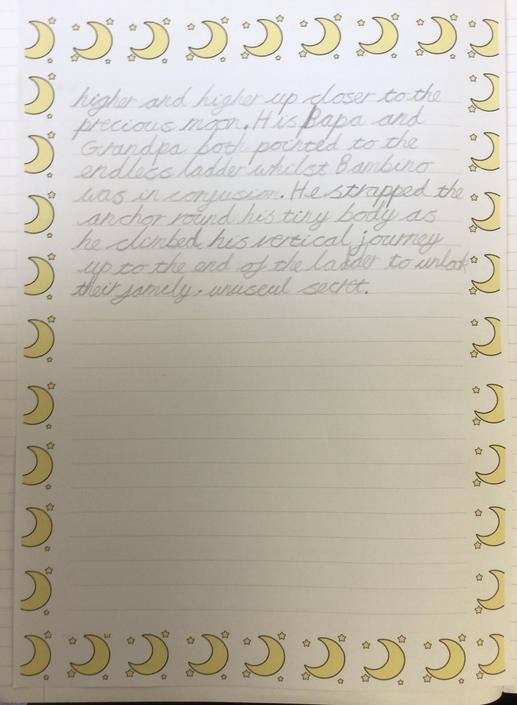 higher and higher up closer to the
precious moon. His Papa and
Grandpa both pointed to the
endless ladder whilst Bambino
was in confusion. He strapped the
anchor round his tiny body as
he climbed his vertical journey
up to the end of the ladder to unlok
their family. unuseul secret.